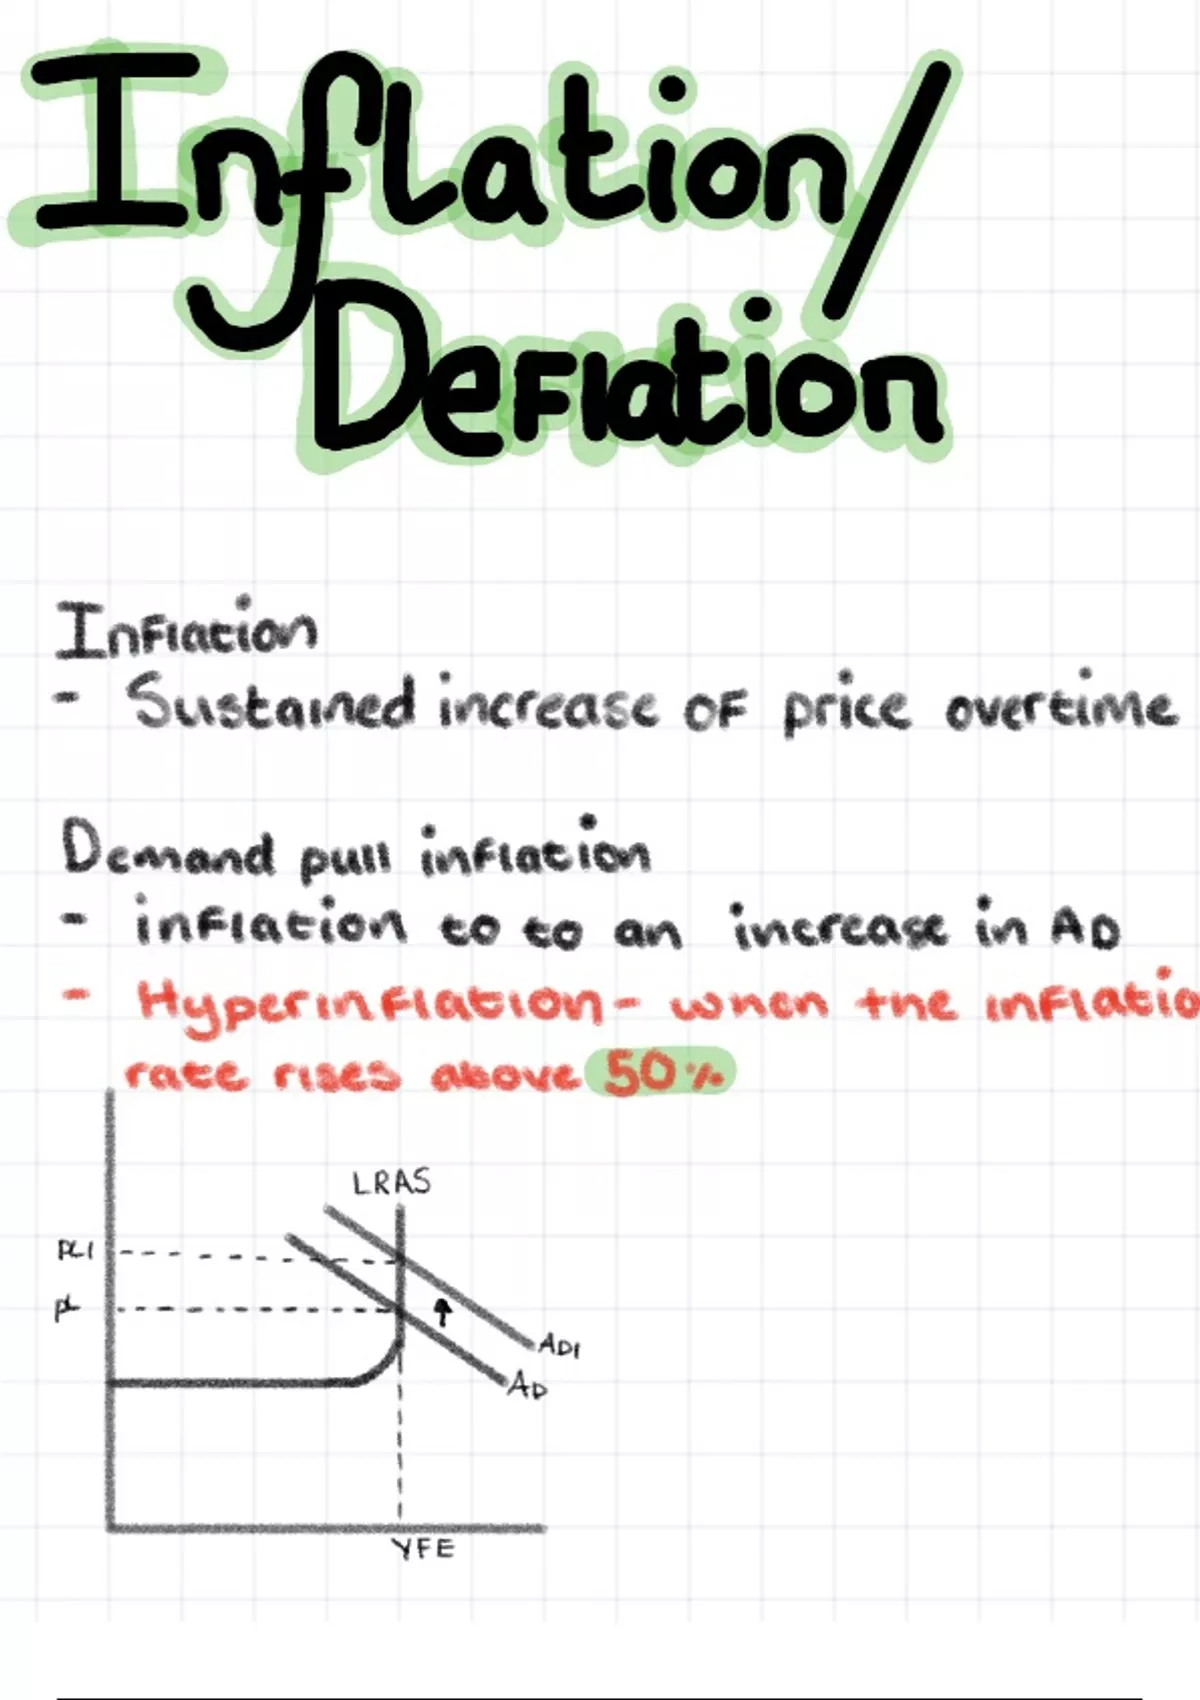 Inflation/
Deflation
Inflation
- Sustained increase of price overtime
Demand pull inflation
- inflation to to an increase in AD
- Hyperinflation - when the inflatio
rate rises above 50%
LRAS
PL1
PL
AD1
AD
YFE